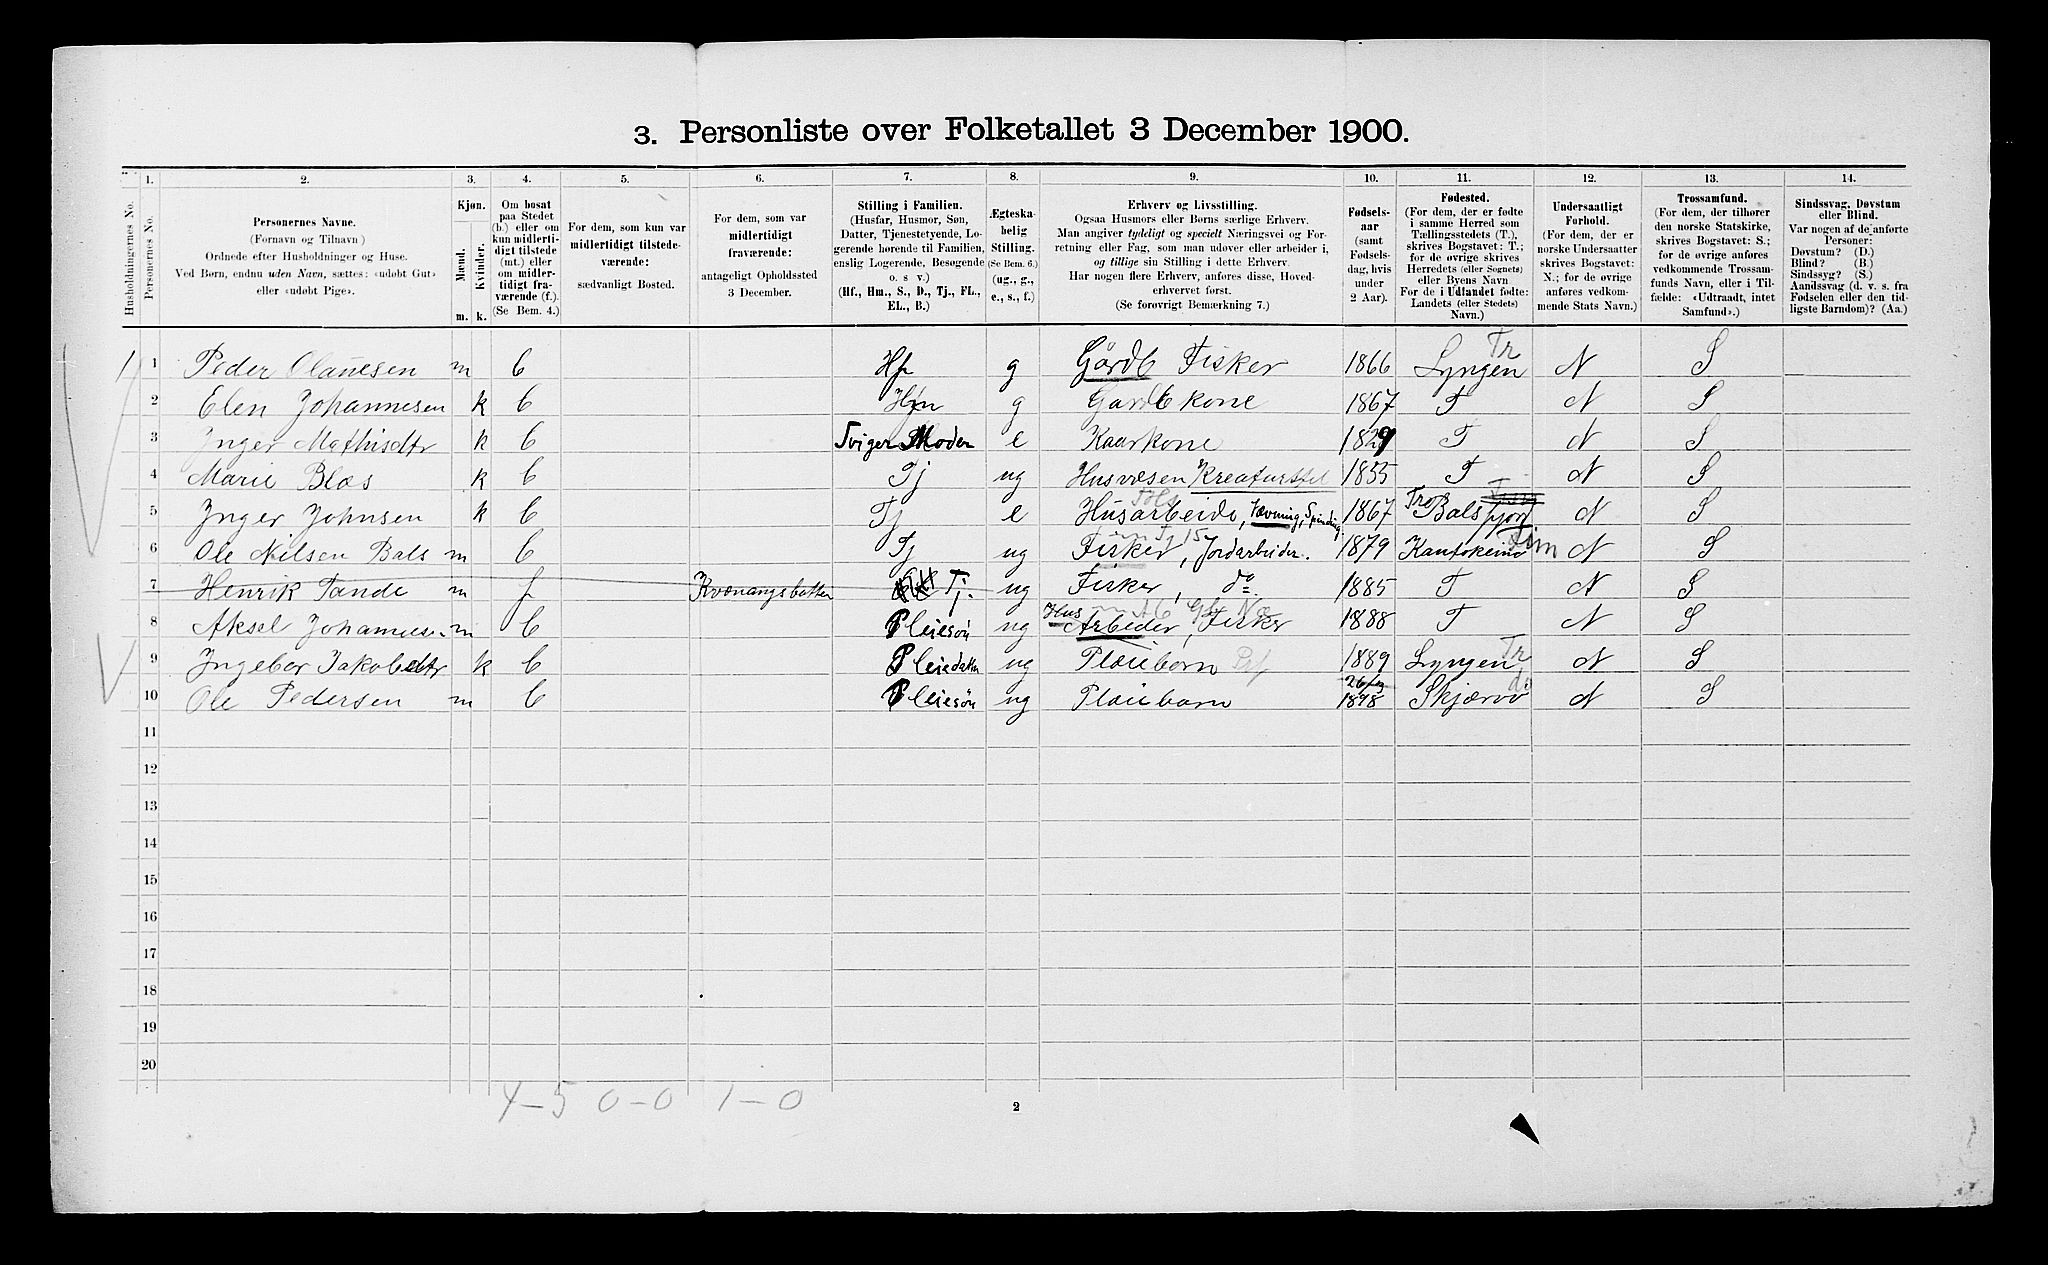 3. Personliste over Folketallet 3 December 1900.
1. 2. 3. 4. 5. 6. 7. 8. 9. 10. 11. 12. 13. 14.
Husholdningernes No.
Personernes No.
Personernes Navne.
(Fornavn og Tilnavn)
Ordnede efter Husholdninger og Huse.
Ved Børn, endnu uden Navn, sættes: «udøbt Gut»
eller «udøbt Pige».
Kjøn.
Mænd. Kvinder.
m. k.
Om bosat
paa Stedet
(b.) eller om
kun midlerti-
digt tilstede
(mt.) eller
om midler-
tidigt fra-
værende (f.).
(Se Bem. 4.)
For dem, som kun var
midlertidigt tilstede-
værende:
sædvanligt Bosted.
For dem, som var
midlertidigt
fraværende:
antageligt Opholdssted
3 December.
Stilling i Familien.
(Husfar, Husmor, Søn,
Datter, Tjenestetyende, Lo-
gerende hørende til Familien,
enslig Logerende, Besøgende
o. s v.)
(Hf., Hm., S., D., Tj., FL.,
EL., B.)
Ægteska-
belig
Stilling.
(Se Bem. 6.)
(ug., g.,
e., s., f.)
Erhverv og Livsstilling.
Ogsaa Husmors eller Børns særlige Erhverv.
Man angiver tydeligt og specielt Næringsvei og For-
retning eller Fag, som man udøver eller arbeider i,
og tillige sin Stilling i dette Erhverv.
Har nogen flere Erhverv, anføres disse, Hoved-
erhvervet først.
(Se forøvrigt Bemærkning 7.)
Fødsels-
aar
(samt
Fødsels-
dag, hvis
under
2 Aar).
Fødested.
(For dem, der er fødte
i samme Herred som
Tællingsstedets (T.),
skrives Bogstavet: T.;
for de øvrige skrives
Herredets (eller Sognets)
eller Byens Navn
For de i Udlandet fødte:
Landets (eller Stedets)
Navn.)
Undersaatligt
Forhold.
(For dem, der er
norske Undersaatter
skrives Bogstavet:
N.; for de øvrige
anføres vedkom-
mende Stats Navn.)
Trossamfund.
(For dem, der tilhører
den norske Statskirke,
skrives Bogstavet: S.;
for de øvrige anføres
vedkommende Trossam-
funds Navn, eller i Til-
fælde: «Udtraadt, intet
Samfund».)
Sindssvag, Døvstum
eller Blind.
Var nogen af de anførte
Personer:
Døvstum? (D.)
Blind? (B.)
Sindssyg? (S.)
Aandssvag (d. v. s. fra
Fødselen eller den tid-
ligste Barndom)? (Aa.)
1 1 Peder Olausen m b Hf g Gårdb Fisker 1866 Lyngen Tr N S
2 Elen Johannesen k b Hm g Gardb kone 1867 T N S
3 Inger Mathisdtr k b Sviger Moder e Kaarkone 1829 T N S
4 Marie Blæs k b Tj ug Husvæsen Kreaturstel 1855 T N S
5 Inger Johnsen k b Tj e Husarbeide, Vævning, Spinding 1867 Tro Balsfjord N S
6 Ole Nilsen Bals m b Tj ug Fisker, Jordarbeider. 1879 Kautokeino Fin N S
7 Henrik Tande m f Kvænangsbotten Tj. ug Fisker, do. 1885 T N S
8 Aksel Johannesen m b Pleiesøn ug Hus Arbeider, Fisker 1888 T N S
9 Ingebor Jakobsdtr k b Pleiedatter ug Pleiebørn 1889 Lyngen Tr N S
10 Ole Pedersen m b Pleiesøn ug Pleiebarn 26/9 1898 Skjærvø do N S
11
12
13
14
15
16
17
18
19
20
4–5 0–0 1–0
2